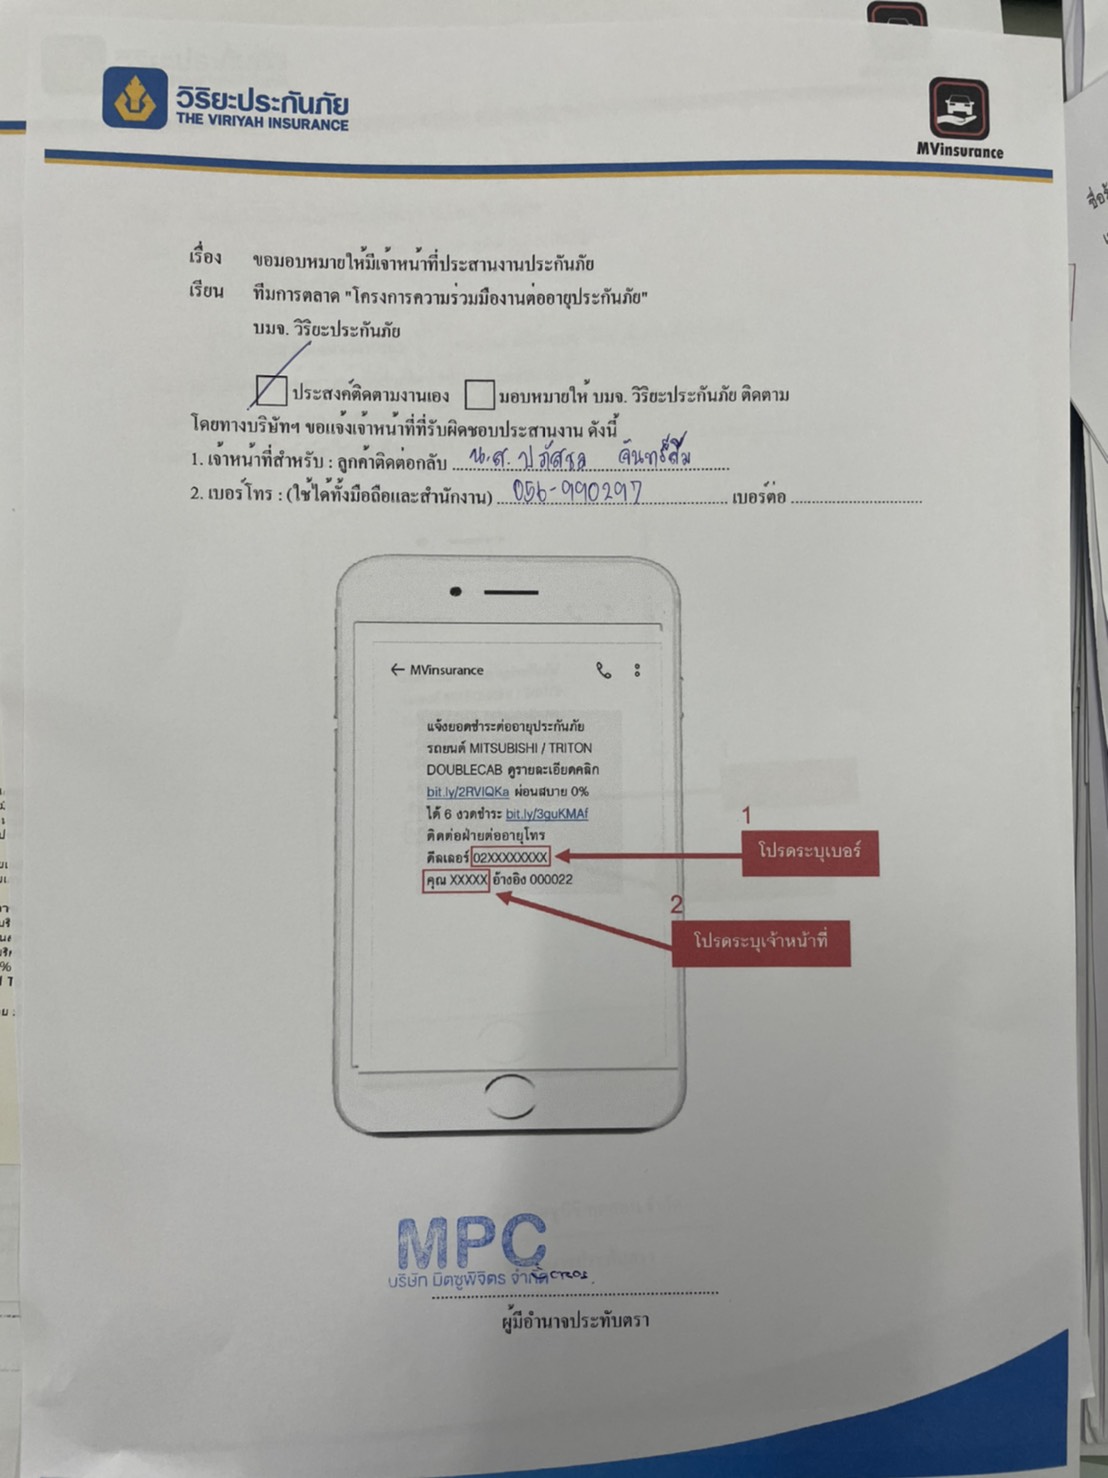 วิริยะประกันภัย
THE VIRIYAH INSURANCE
MVinsurance
เรื่อง ขอมอบหมายให้มีเจ้าหน้าที่ประสานงานประกันภัย
เรียน ทีมการตลาด "โครงการความร่วมมืองานต่ออายุประกันภัย"
บมจ. วิริยะประกันภัย
ประสงค์ติดตามงานเอง มอบหมายให้ บมจ. วิริยะประกันภัย ติดตาม
โดยทางบริษัทฯ ขอแจ้งเจ้าหน้าที่ที่รับผิดชอบประสานงาน ดังนี้
1. เจ้าหน้าที่สำหรับ : ลูกค้าติดต่อกลับ น.ส. ปภัสชล จันทร์ส้ม
2. เบอร์โทร : (ใช้ได้ทั้งมือถือและสำนักงาน) 056-990297 เบอร์ต่อ
← MVinsurance
แจ้งยอดชำระต่ออายุประกันภัย
รถยนต์ MITSUBISHI / TRITON
DOUBLECAB ดูรายละเอียดคลิก
bit.ly/2RVIQKa ผ่อนสบาย 0%
ได้ 6 งวดชำระ bit.ly/3guKMAf
ติดต่อฝ่ายต่ออายุโทร
ดีลเลอร์ 02XXXXXXXX
คุณ XXXXX อ้างอิง 000022
1
โปรดระบุเบอร์
2
โปรดระบุเจ้าหน้าที่
MPC
บริษัท มิตซูพิจิตร จำกัด
ผู้มีอำนาจประทับตรา